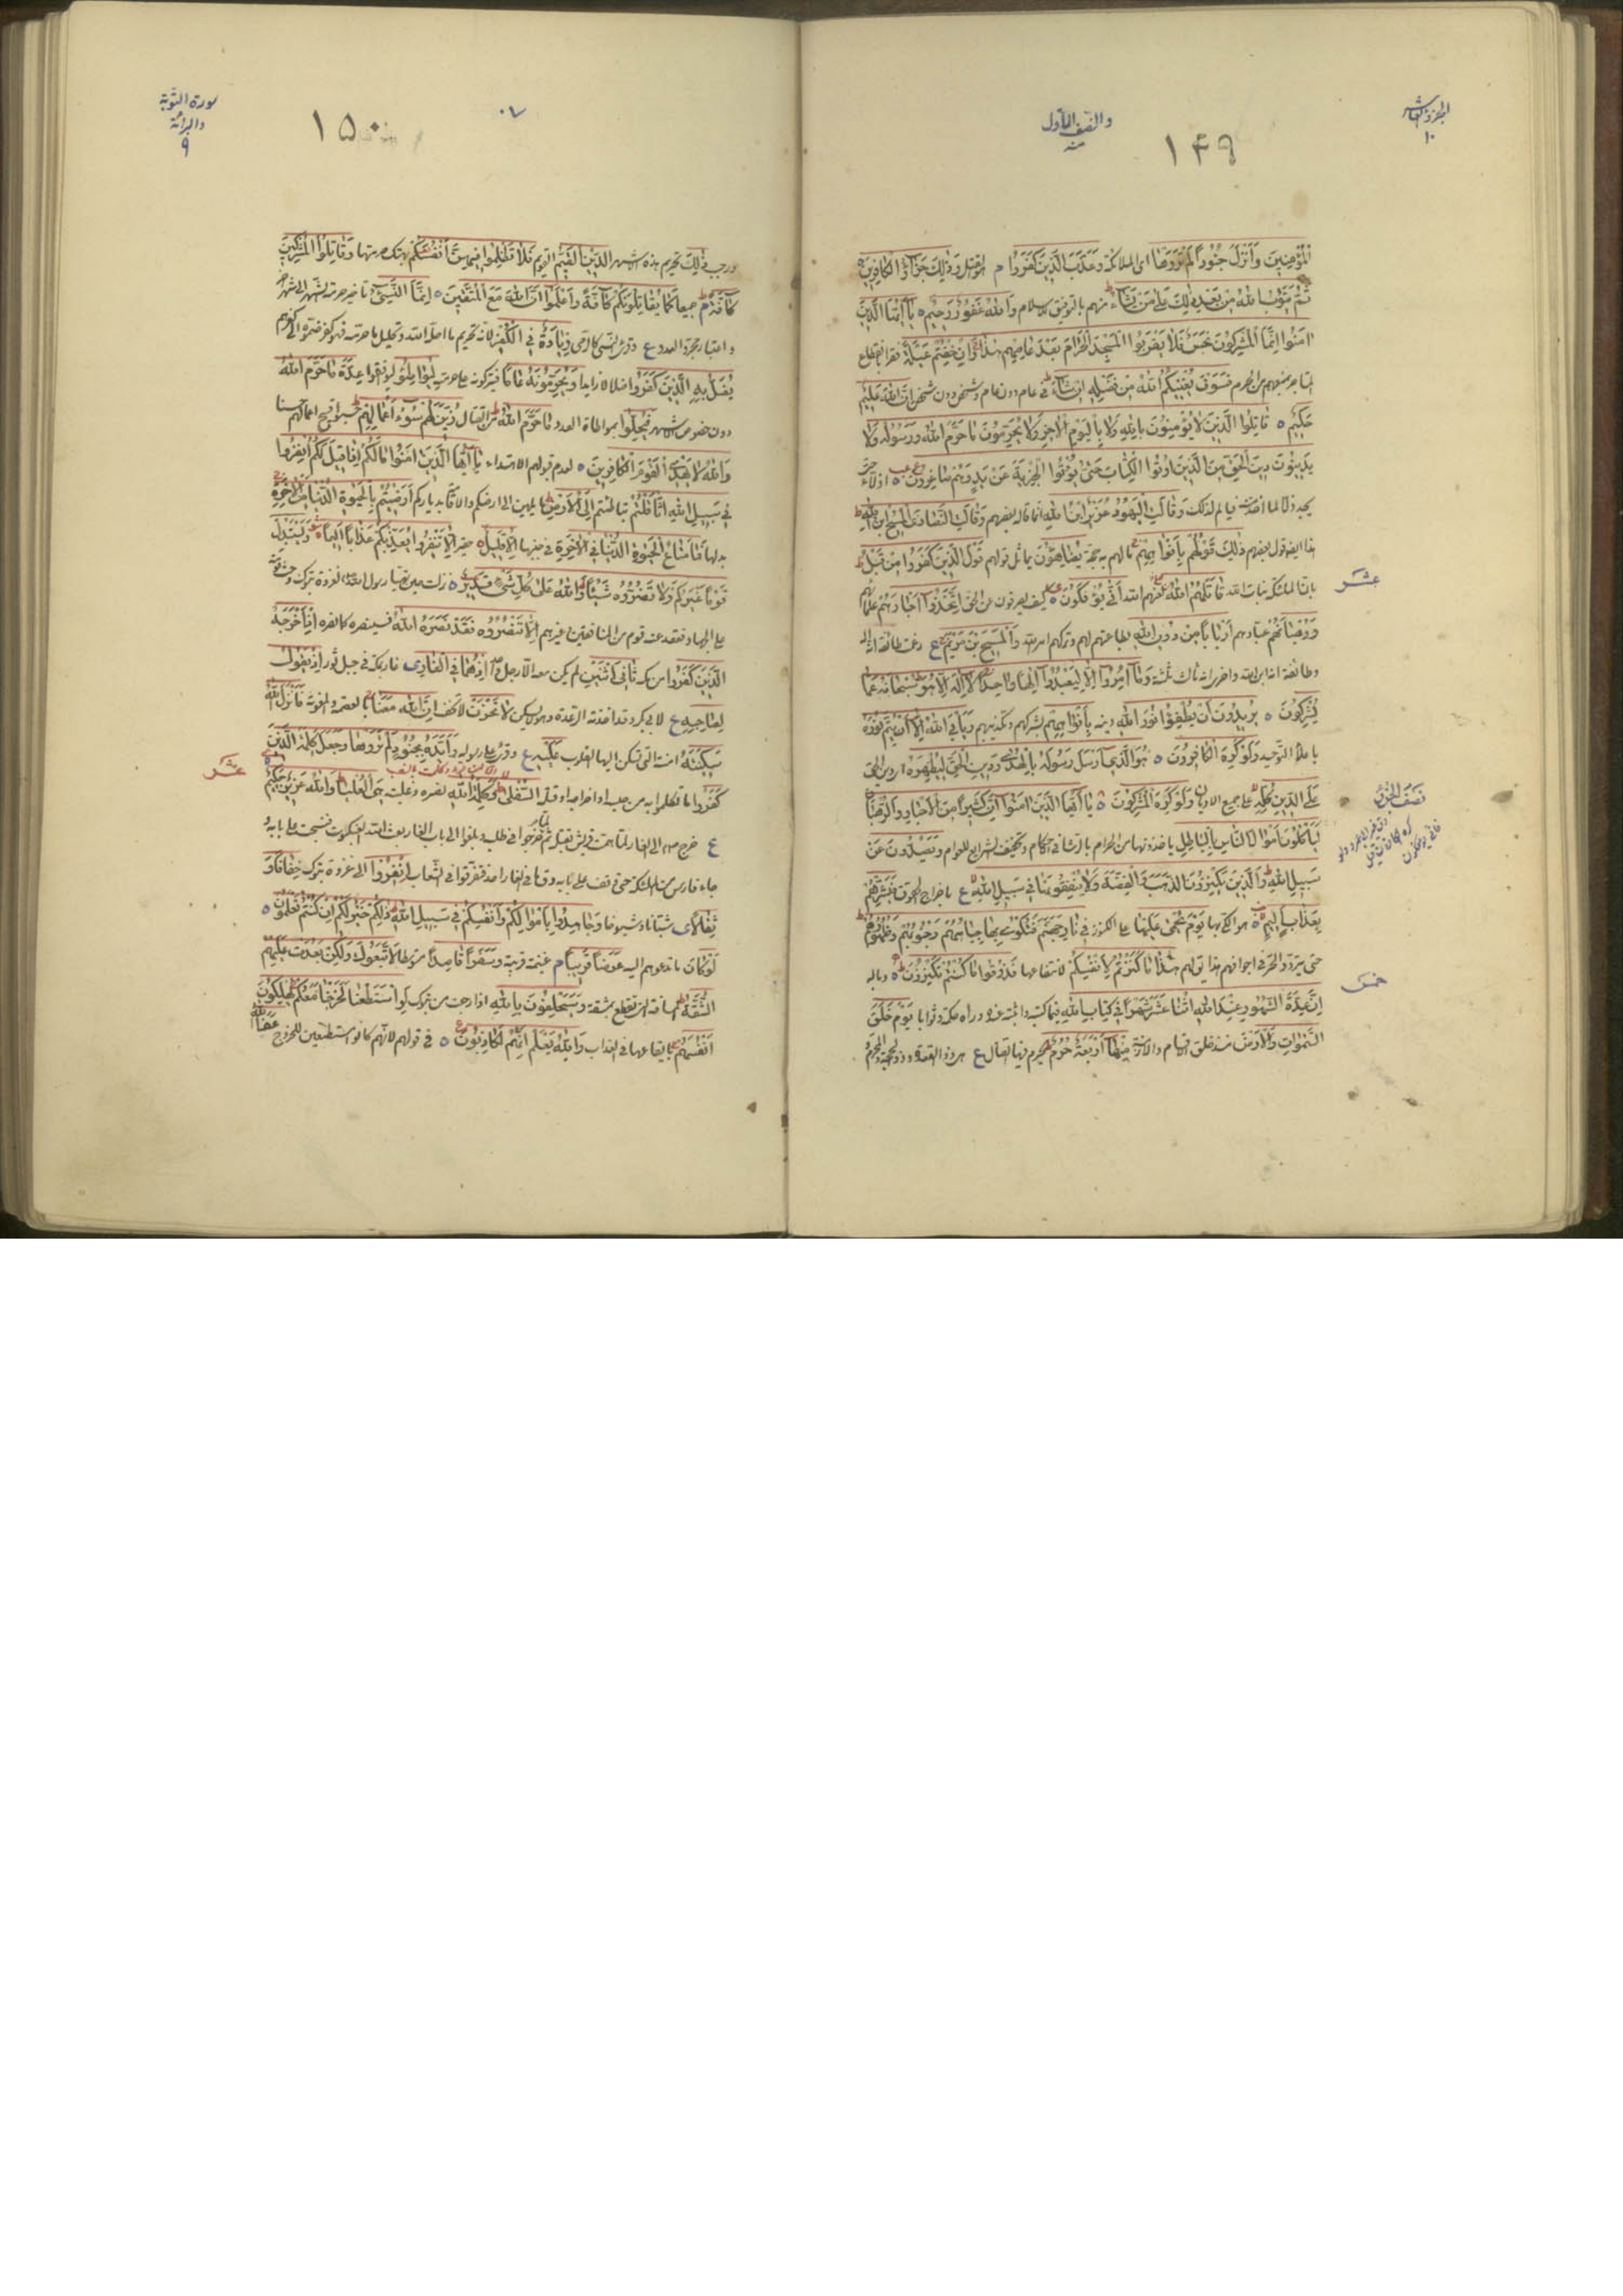 الجزؤ العاشر
١٠
والنصف الأول
منه
١٤٩
الْمُؤْمِنِينَ وَأَنْزَلَ جُنُودًا لَمْ تَرَوْهَا اى الملائكة وَعَذَّبَ الَّذِينَ كَفَرُوا م بالقتل وَذٰلِكَ جَزَاؤُ الْكَافِرِينَ ه
ثُمَّ يَتُوبُ اللّٰهُ مِنْ بَعْدِ ذٰلِكَ عَلٰى مَنْ يَشَاءُ ط منهم بالتوفيق للاسلام وَاللّٰهُ غَفُورٌ رَحِيمٌ ه يَا أَيُّهَا الَّذِينَ
اٰمَنُوا إِنَّمَا الْمُشْرِكُونَ نَجَسٌ فَلَا يَقْرَبُوا الْمَسْجِدَ الْحَرَامَ بَعْدَ عَامِهِمْ هٰذَا وَإِنْ خِفْتُمْ عَيْلَةً فقرا بانقطاع
بمنعهم من الحرم فَسَوْفَ يُغْنِيكُمُ اللّٰهُ مِنْ فَضْلِهِ إِنْ شَاءَ ط فى عام دون عام وشخص دون شخص إِنَّ اللّٰهَ عَلِيمٌ
حَكِيمٌ ه قَاتِلُوا الَّذِينَ لَا يُؤْمِنُونَ بِاللّٰهِ وَلَا بِالْيَوْمِ الْاٰخِرِ وَلَا يُحَرِّمُونَ مَا حَرَّمَ اللّٰهُ وَرَسُولُهُ وَلَا
يَدِينُونَ دِينَ الْحَقِّ مِنَ الَّذِينَ أُوتُوا الْكِتَابَ حَتّٰى يُعْطُوا الْجِزْيَةَ عَنْ يَدٍ وَهُمْ صَاغِرُونَ ه اذلاء حتى
يجد ذلا لما اخذ منه فيألم لذلك وَقَالَتِ الْيَهُودُ عُزَيْرٌ ابْنُ اللّٰهِ انما قاله بعضهم وَقَالَتِ النَّصَارَى الْمَسِيحُ ابْنُ اللّٰهِ ط
هذا ايضا قول بعضهم ذٰلِكَ قَوْلُهُمْ بِأَفْوَاهِهِمْ ج ما لهم به حجة يُضَاهِؤُنَ يماثل قولهم قَوْلَ الَّذِينَ كَفَرُوا مِنْ قَبْلُ ط
بان الملائكة بنات الله قَاتَلَهُمُ اللّٰهُ لعنهم الله أَنّٰى يُؤْفَكُونَ ه كيف يصرفون عن الحق اتَّخَذُوا أَحْبَارَهُمْ علمائهم
وَرُهْبَانَهُمْ عبادهم أَرْبَابًا مِنْ دُونِ اللّٰهِ بطاعتهم لهم وتركهم امر الله وَالْمَسِيحَ بْنَ مَرْيَمَ ع زعمت طائفة انه اله
وطائفة انه ابن الله واخرى انه ثالث ثلثة وَمَا أُمِرُوا إِلَّا لِيَعْبُدُوا إِلٰهًا وَاحِدًا لَا إِلٰهَ إِلَّا هُوَ سُبْحَانَهُ عَمَّا
يُشْرِكُونَ ه يُرِيدُونَ أَنْ يُطْفِؤُا نُورَ اللّٰهِ دينه بِأَفْوَاهِهِمْ بشركهم وتكذيبهم وَيَأْبَى اللّٰهُ إِلَّا أَنْ يُتِمَّ نُورَهُ
باعلاء التوحيد وَلَوْ كَرِهَ الْكَافِرُونَ ه هُوَ الَّذِي أَرْسَلَ رَسُولَهُ بِالْهُدٰى وَدِينِ الْحَقِّ لِيُظْهِرَهُ اى دين الحق
عَلَى الدِّينِ كُلِّهِ على جميع الاديان وَلَوْ كَرِهَ الْمُشْرِكُونَ ه يَا أَيُّهَا الَّذِينَ اٰمَنُوا إِنَّ كَثِيرًا مِنَ الْأَحْبَارِ وَالرُّهْبَانِ
لَيَأْكُلُونَ أَمْوَالَ النَّاسِ بِالْبَاطِلِ ياخذونها من الحرام بالرشا فى الاحكام وتخفيف الشرايع للعوام وَيَصُدُّونَ عَنْ
سَبِيلِ اللّٰهِ وَالَّذِينَ يَكْنِزُونَ الذَّهَبَ وَالْفِضَّةَ وَلَا يُنْفِقُونَهَا فِي سَبِيلِ اللّٰهِ ع باخراج الحقوق فَبَشِّرْهُمْ
بِعَذَابٍ أَلِيمٍ ه هو الكى بها يَوْمَ يُحْمٰى عَلَيْهَا على الكنوز فِي نَارِ جَهَنَّمَ فَتُكْوٰى بِهَا جِبَاهُهُمْ وَجُنُوبُهُمْ وَظُهُورُهُمْ ط
حتى يتردد الحر فى اجوافهم هذا يقال لهم هٰذَا مَا كَنَزْتُمْ لِأَنْفُسِكُمْ لانتفاعها فَذُوقُوا مَا كُنْتُمْ تَكْنِزُونَ ه وباله
إِنَّ عِدَّةَ الشُّهُورِ عِنْدَ اللّٰهِ اثْنَا عَشَرَ شَهْرًا فِي كِتَابِ اللّٰهِ فيما كتبه واثبته عنده وراه حكمة وثوابا يَوْمَ خَلَقَ
السَّمٰوَاتِ وَالْأَرْضَ منذ خلق الاجسام والازمنة مِنْهَا أَرْبَعَةٌ حُرُمٌ يحرم فيها القتال ع هى ذو القعدة وذو الحجة والمحرم
عشر
نصف الحزب
خمس
سورة التوبة
والبرائة
٩
١٥٠
ورجب ذٰلِكَ تحريم هذه الاشهر الدِّينُ الْقَيِّمُ القويم فَلَا تَظْلِمُوا فِيهِنَّ أَنْفُسَكُمْ بهتك حرمتها وَقَاتِلُوا الْمُشْرِكِينَ
كَافَّةً جميعا كَمَا يُقَاتِلُونَكُمْ كَافَّةً وَاعْلَمُوا أَنَّ اللّٰهَ مَعَ الْمُتَّقِينَ ه إِنَّمَا النَّسِيءُ تاخير حرمة الشهر الى شهر آخر
واعتبار مجرد العدد ع وقرئ النسى كالرمى زِيَادَةٌ فِي الْكُفْرِ لانه تحريم ما احل الله وتحليل ما حرمه فهو كفر ضموه الى كفرهم
يُضَلُّ بِهِ الَّذِينَ كَفَرُوا ضلالا زايدا وَيُحَرِّمُونَهُ عَامًا فيتركونه على حرمته لِيُوَاطِئُوا ليوافقوا عِدَّةَ مَا حَرَّمَ اللّٰهُ
دون خصوص الاشهر فَيُحِلُّوا بمواطاة العدد مَا حَرَّمَ اللّٰهُ من القتال زُيِّنَ لَهُمْ سُوءُ أَعْمَالِهِمْ ط فحسبوا قبيح اعمالهم حسنا
وَاللّٰهُ لَا يَهْدِي الْقَوْمَ الْكَافِرِينَ ه لعدم قبولهم الاهتداء يَا أَيُّهَا الَّذِينَ اٰمَنُوا مَا لَكُمْ إِذَا قِيلَ لَكُمُ انْفِرُوا
فِي سَبِيلِ اللّٰهِ اثَّاقَلْتُمْ تباطئتم إِلَى الْأَرْضِ مايلين الى ارضكم والاقامة بدياركم أَرَضِيتُمْ بِالْحَيٰوةِ الدُّنْيَا مِنَ الْاٰخِرَةِ
بدلها فَمَا مَتَاعُ الْحَيٰوةِ الدُّنْيَا فِي الْاٰخِرَةِ فى جنبها إِلَّا قَلِيلٌ ه حقير إِلَّا تَنْفِرُوا يُعَذِّبْكُمْ عَذَابًا أَلِيمًا وَيَسْتَبْدِلْ
قَوْمًا غَيْرَكُمْ وَلَا تَضُرُّوهُ شَيْئًا وَاللّٰهُ عَلٰى كُلِّ شَيْءٍ قَدِيرٌ ه نزلت حين تهيأ رسول الله لغزوة تبوك وحث
على الجهاد فقعد عنه قوم من المنافقين وغيرهم إِلَّا تَنْصُرُوهُ فَقَدْ نَصَرَهُ اللّٰهُ فسينصره كما نصره إِذْ أَخْرَجَهُ
الَّذِينَ كَفَرُوا من مكة ثَانِيَ اثْنَيْنِ لم يكن معه الا رجل واحد إِذْ هُمَا فِي الْغَارِ غار بمكة فى جبل ثور إِذْ يَقُولُ
لِصَاحِبِهِ ع لابى بكر وقد اخذته الرعدة وهو لا يسكن لَا تَحْزَنْ لا تخف إِنَّ اللّٰهَ مَعَنَا بالعصمة والمعونة فَأَنْزَلَ اللّٰهُ
سَكِينَتَهُ امنته التى تسكن اليها القلوب عَلَيْهِ ع وقرئ على رسوله وَأَيَّدَهُ بِجُنُودٍ لَمْ تَرَوْهَا وَجَعَلَ كَلِمَةَ الَّذِينَ
كَفَرُوا ما تكلموا به من حبسه او اخراجه او قتله السُّفْلٰى وَكَلِمَةُ اللّٰهِ نصره وغلبته هِيَ الْعُلْيَا وَاللّٰهُ عَزِيزٌ حَكِيمٌ ه
ع خرج ص الى الغار لما همت قريش بقتله ثم خرجوا فى طلبه وبلغوا الى باب الغار بعث الله العنكبوت فنسجت على بابه و
جاء فارس من الملائكة حتى وقف على بابه وقال ما فى الغار احد فتفرقوا فى الشعاب انْفِرُوا الى غزوة تبوك خِفَافًا وَ
ثِقَالًا اى شبانا وشيوخا وَجَاهِدُوا بِأَمْوَالِكُمْ وَأَنْفُسِكُمْ فِي سَبِيلِ اللّٰهِ ذٰلِكُمْ خَيْرٌ لَكُمْ إِنْ كُنْتُمْ تَعْلَمُونَ ه
لَوْ كَانَ ما تدعوهم اليه عَرَضًا قَرِيبًا م غنيمة قريبة وَسَفَرًا قَاصِدًا متوسطا لَاتَّبَعُوكَ وَلٰكِنْ بَعُدَتْ عَلَيْهِمُ
الشُّقَّةُ المسافة التى تقطع بمشقة وَسَيَحْلِفُونَ بِاللّٰهِ اذا رجعت من تبوك لَوِ اسْتَطَعْنَا لَخَرَجْنَا مَعَكُمْ يُهْلِكُونَ
أَنْفُسَهُمْ بايقاعها فى العذاب وَاللّٰهُ يَعْلَمُ إِنَّهُمْ لَكَاذِبُونَ ه فى قولهم لانهم كانوا مستطيعين للخروج عَفَا اللّٰهُ
عشر